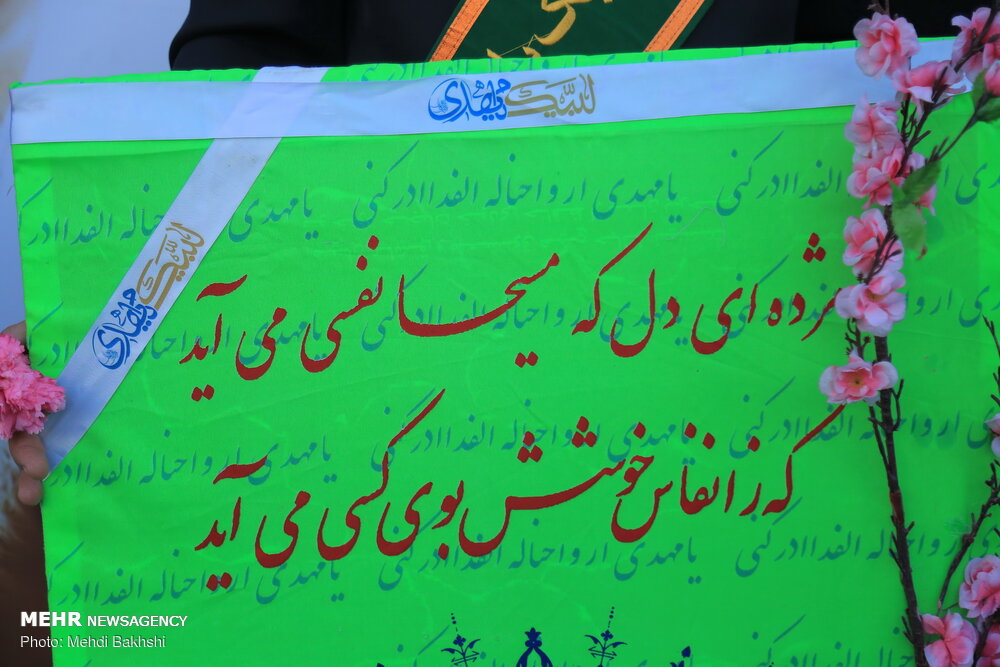 لبیک یا مهدی
لبیک یا مهدی
مژده ای دل که مسیحا نفسی می آید
که ز انفاس خوشش بوی کسی می آید
یا مهدی ارواحنا له الفدا ادرکنی
MEHR NEWSAGENCY
Photo: Mehdi Bakhshi